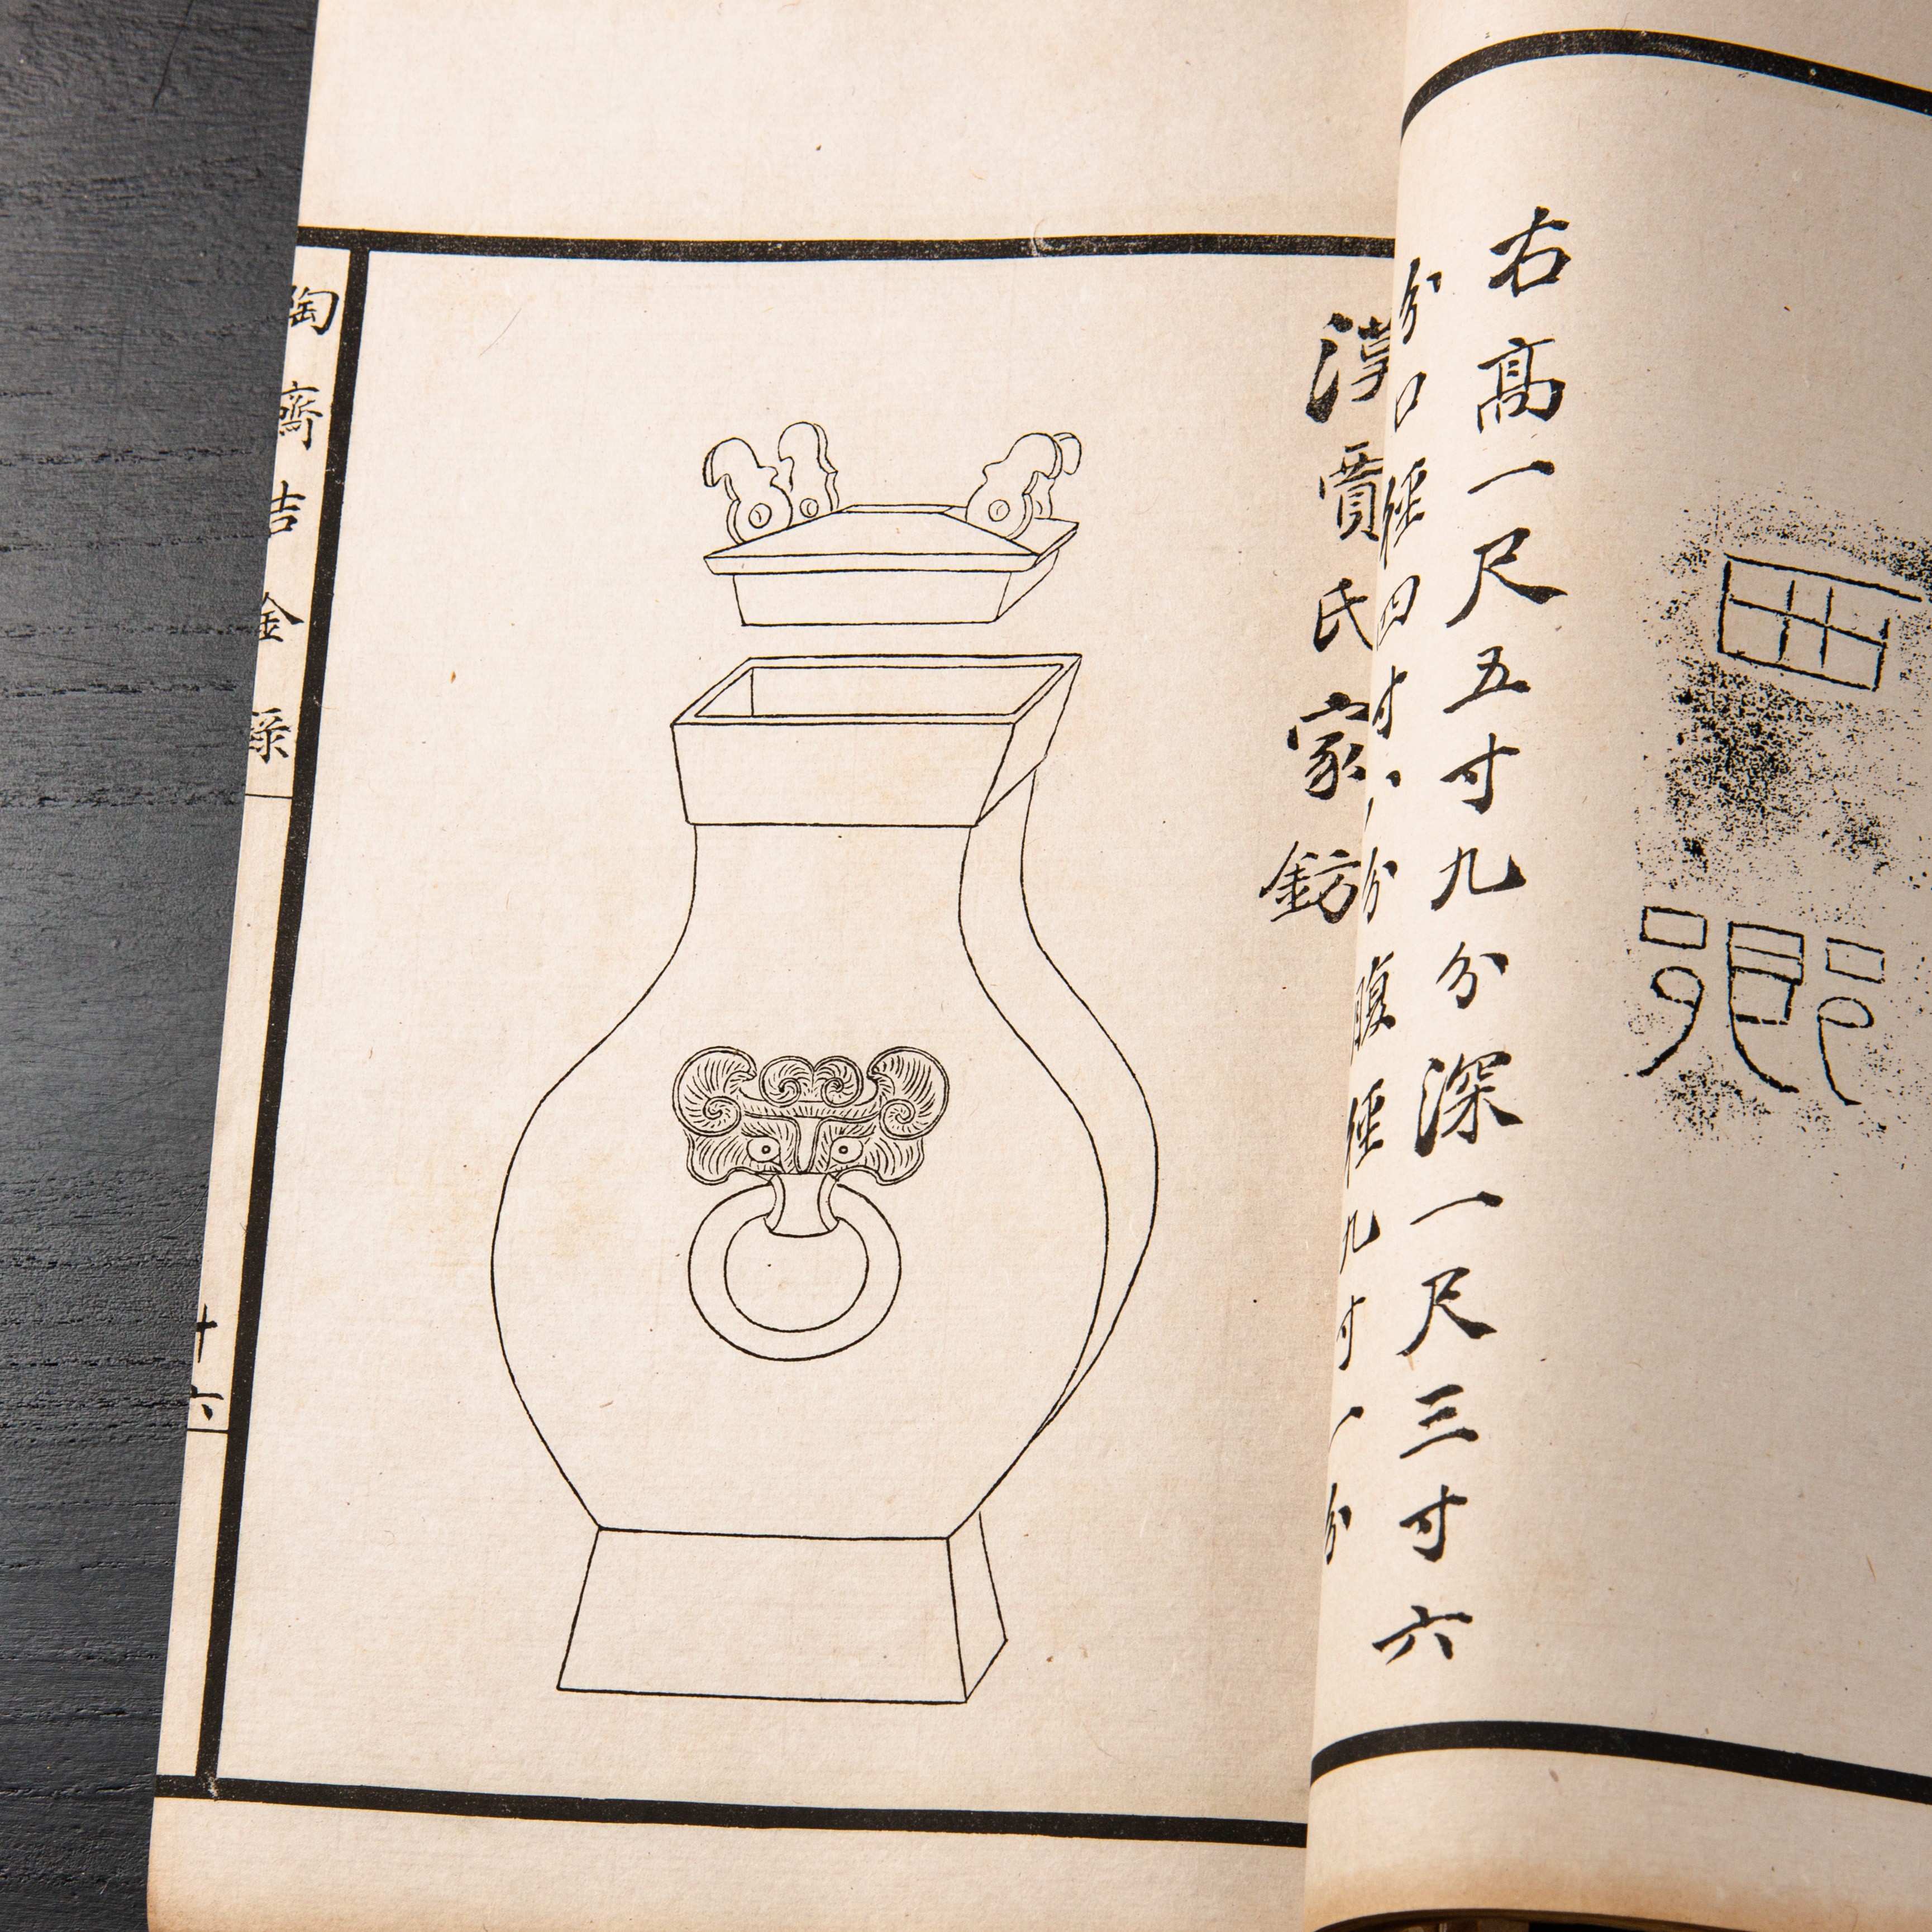 鄉
右高一尺五寸九分深一尺三寸六
分口徑四寸八分腹徑九寸一分
漢賈氏家鈁
陶齋吉金錄
十六